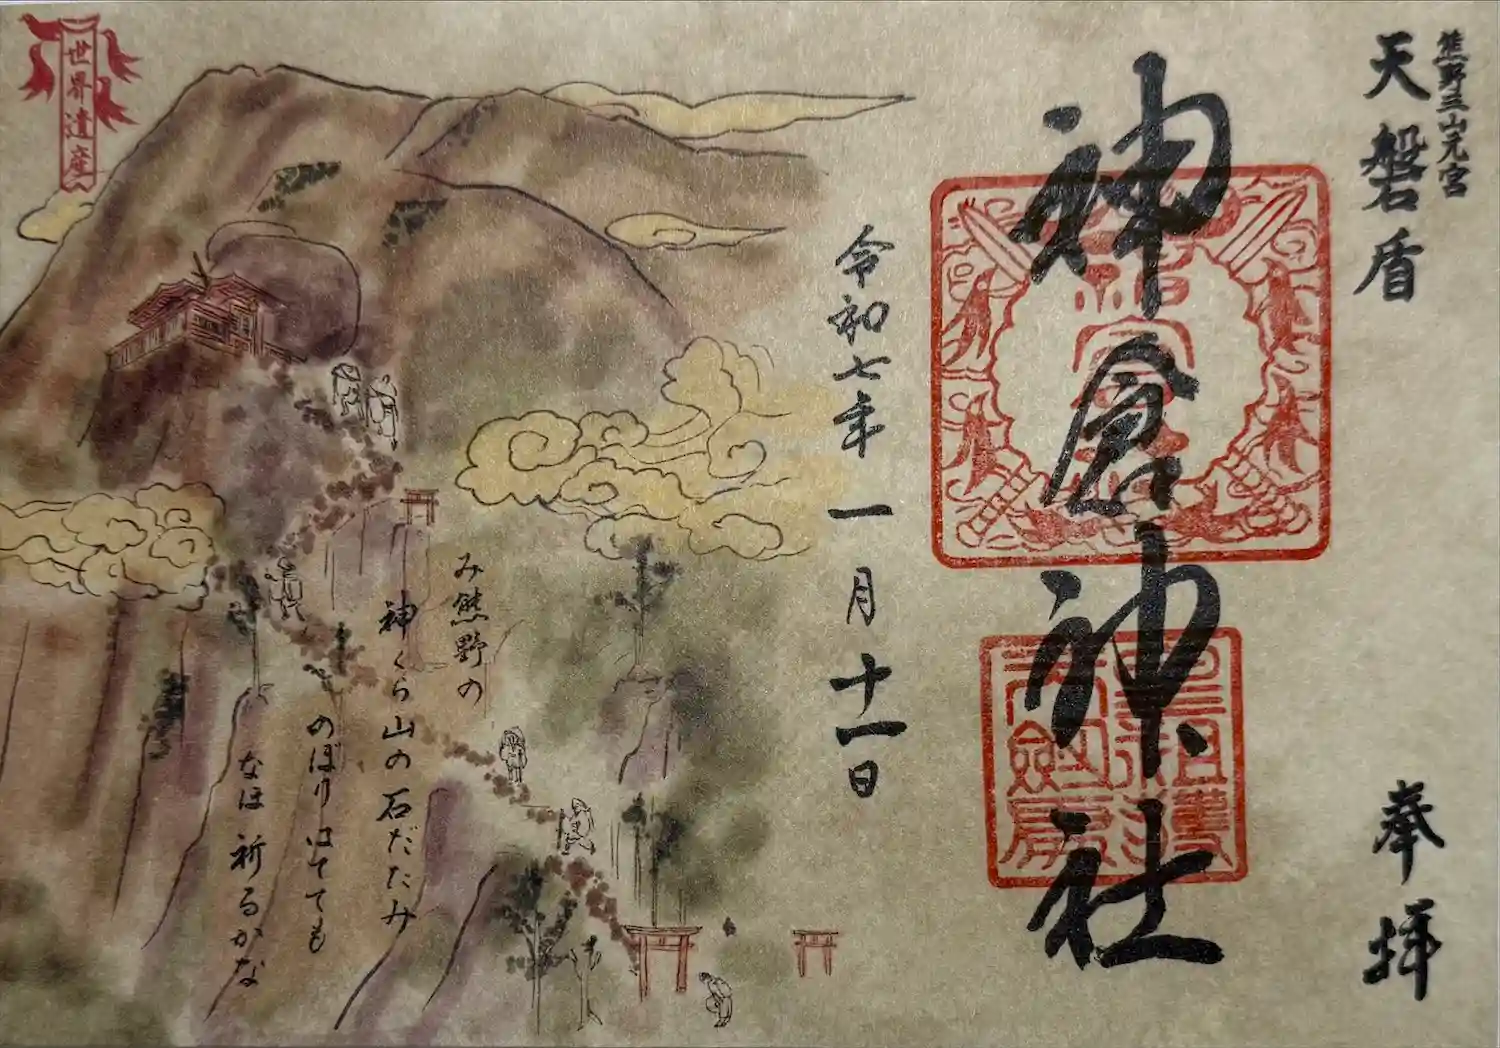 熊野三山元宮
天磐盾
奉拝
神倉神社
令和七年一月十一日
み熊野の
神くら山の石だたみ
のぼりはてても
なほ祈るかな
世界遺産